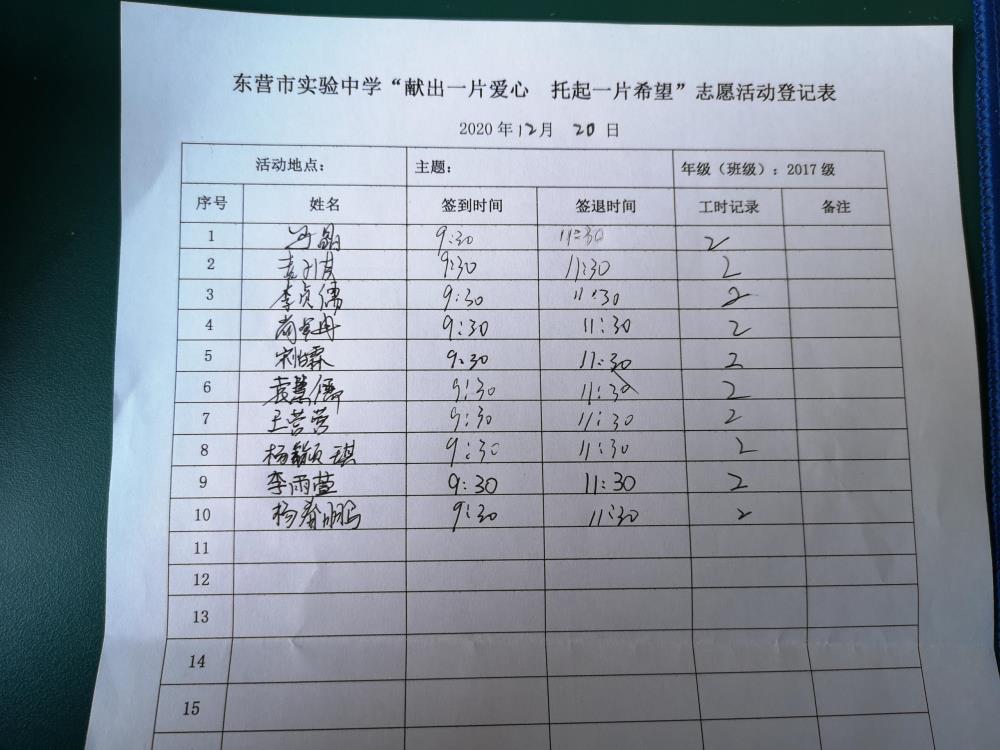 东营市实验中学“献出一片爱心 托起一片希望”志愿活动登记表
2020 年 12 月 20 日
活动地点： 主题： 年级（班级）：2017 级
序号 姓名 签到时间 签退时间 工时记录 备注
1 冯晶 9:30 11:30 2
2 9:30 11:30 2
3 李贞儒 9:30 11:30 2
4 9:30 11:30 2
5 宋怡霖 9:30 11:30 2
6 袁慧 9:30 11:30 2
7 王营营 9:30 11:30 2
8 杨颖琪 9:30 11:30 2
9 李雨萱 9:30 11:30 2
10 杨春鹏 9:30 11:30 2
11
12
13
14
15